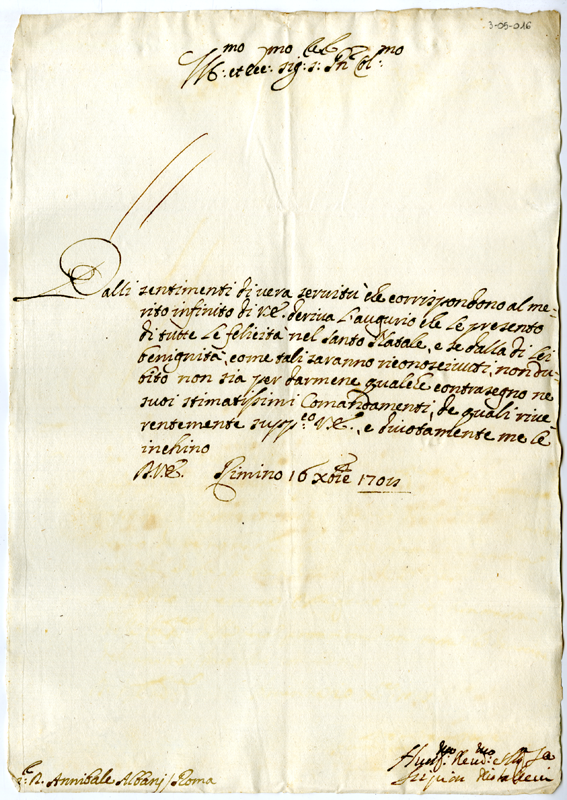 3-05-016
Ill:mo et ecc:mo Sig:r
Dalli sentimenti di vera servitù che corrispondono al me-
rito infinito di V.E. deriva l'augurio che le presento
di tutte le felicità nel Santo Natale, e se dalla di Lei
benignità, come tali saranno riconosciuti, non du-
bito non sia per darmene qualche contrasegno ne
suoi stimatissimi Comandamenti, de quali rive-
rentemente supp:co V.E., e divotamente me le
inchino
D.V.E. Rimino 16 Xbre
Annibale Albani / Roma